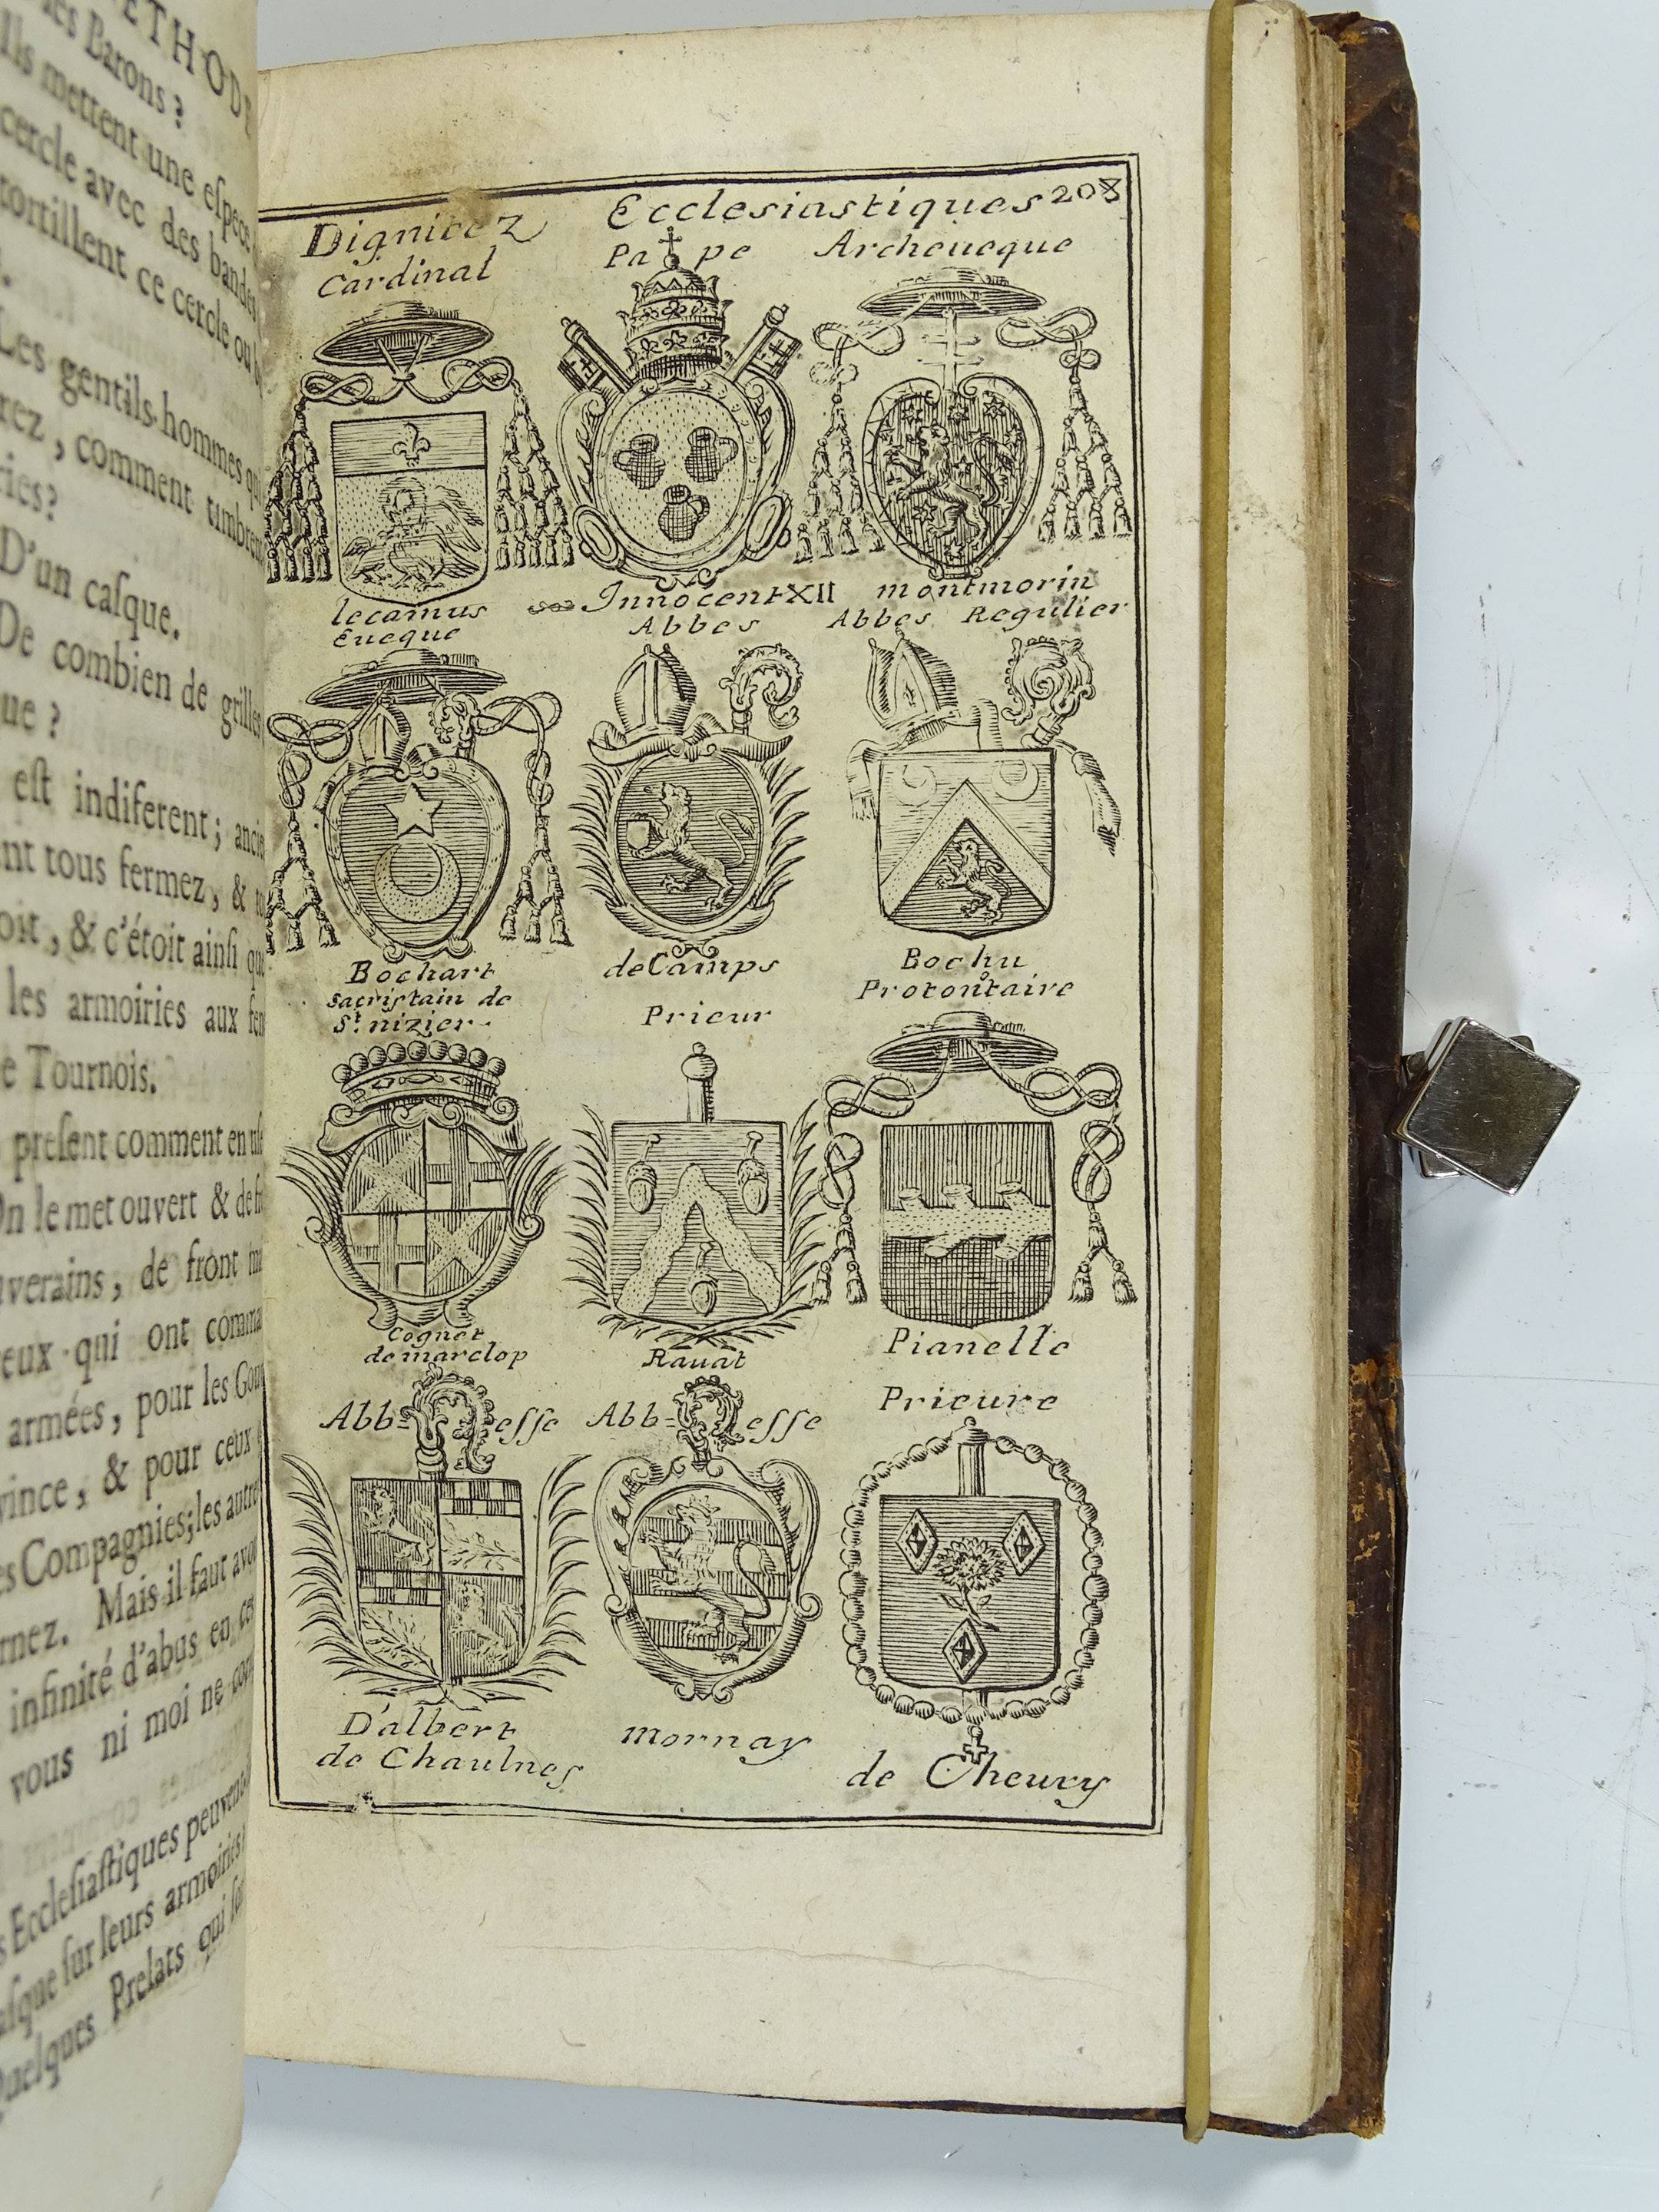 ETHODE
les Barons ?
Ils mettent une eſpece
cercle avec des bandes
tortillent ce cercle ou
Les gentils-hommes
rez, comment timbrent
ries?
D'un caſque.
De combien de grilles
que ?
eſt indiferent;
nt tous fermez, &
oit, & c'étoit ainſi que
les armoiries aux
e Tournois.
preſent comment en
On le met ouvert & de
verains, de front
eux qui ont comma
armées, pour les Gou
vince, & pour ceux
es Compagnies; les autres
rnez. Mais il faut
infinité d'abus en ces
vous ni moi ne
s Eccleſiaſtiques peuvent
aſque ſur leurs armoiries
Quelques Prelats qui
Dignitez Ecclesiastiques 208
Cardinal Pape Archeueque
lecamus Innocent XII montmorin
Eueque Abbes Abbes Regulier
Bochart deCamps Bochu
Sacristain de St. nizier. Prieur Protontaire
Cognet
de marclop Rauat Pianelle
Abb=esse Abb=esse Prieure
D'albert
de Chaulnes mornay de Cheury